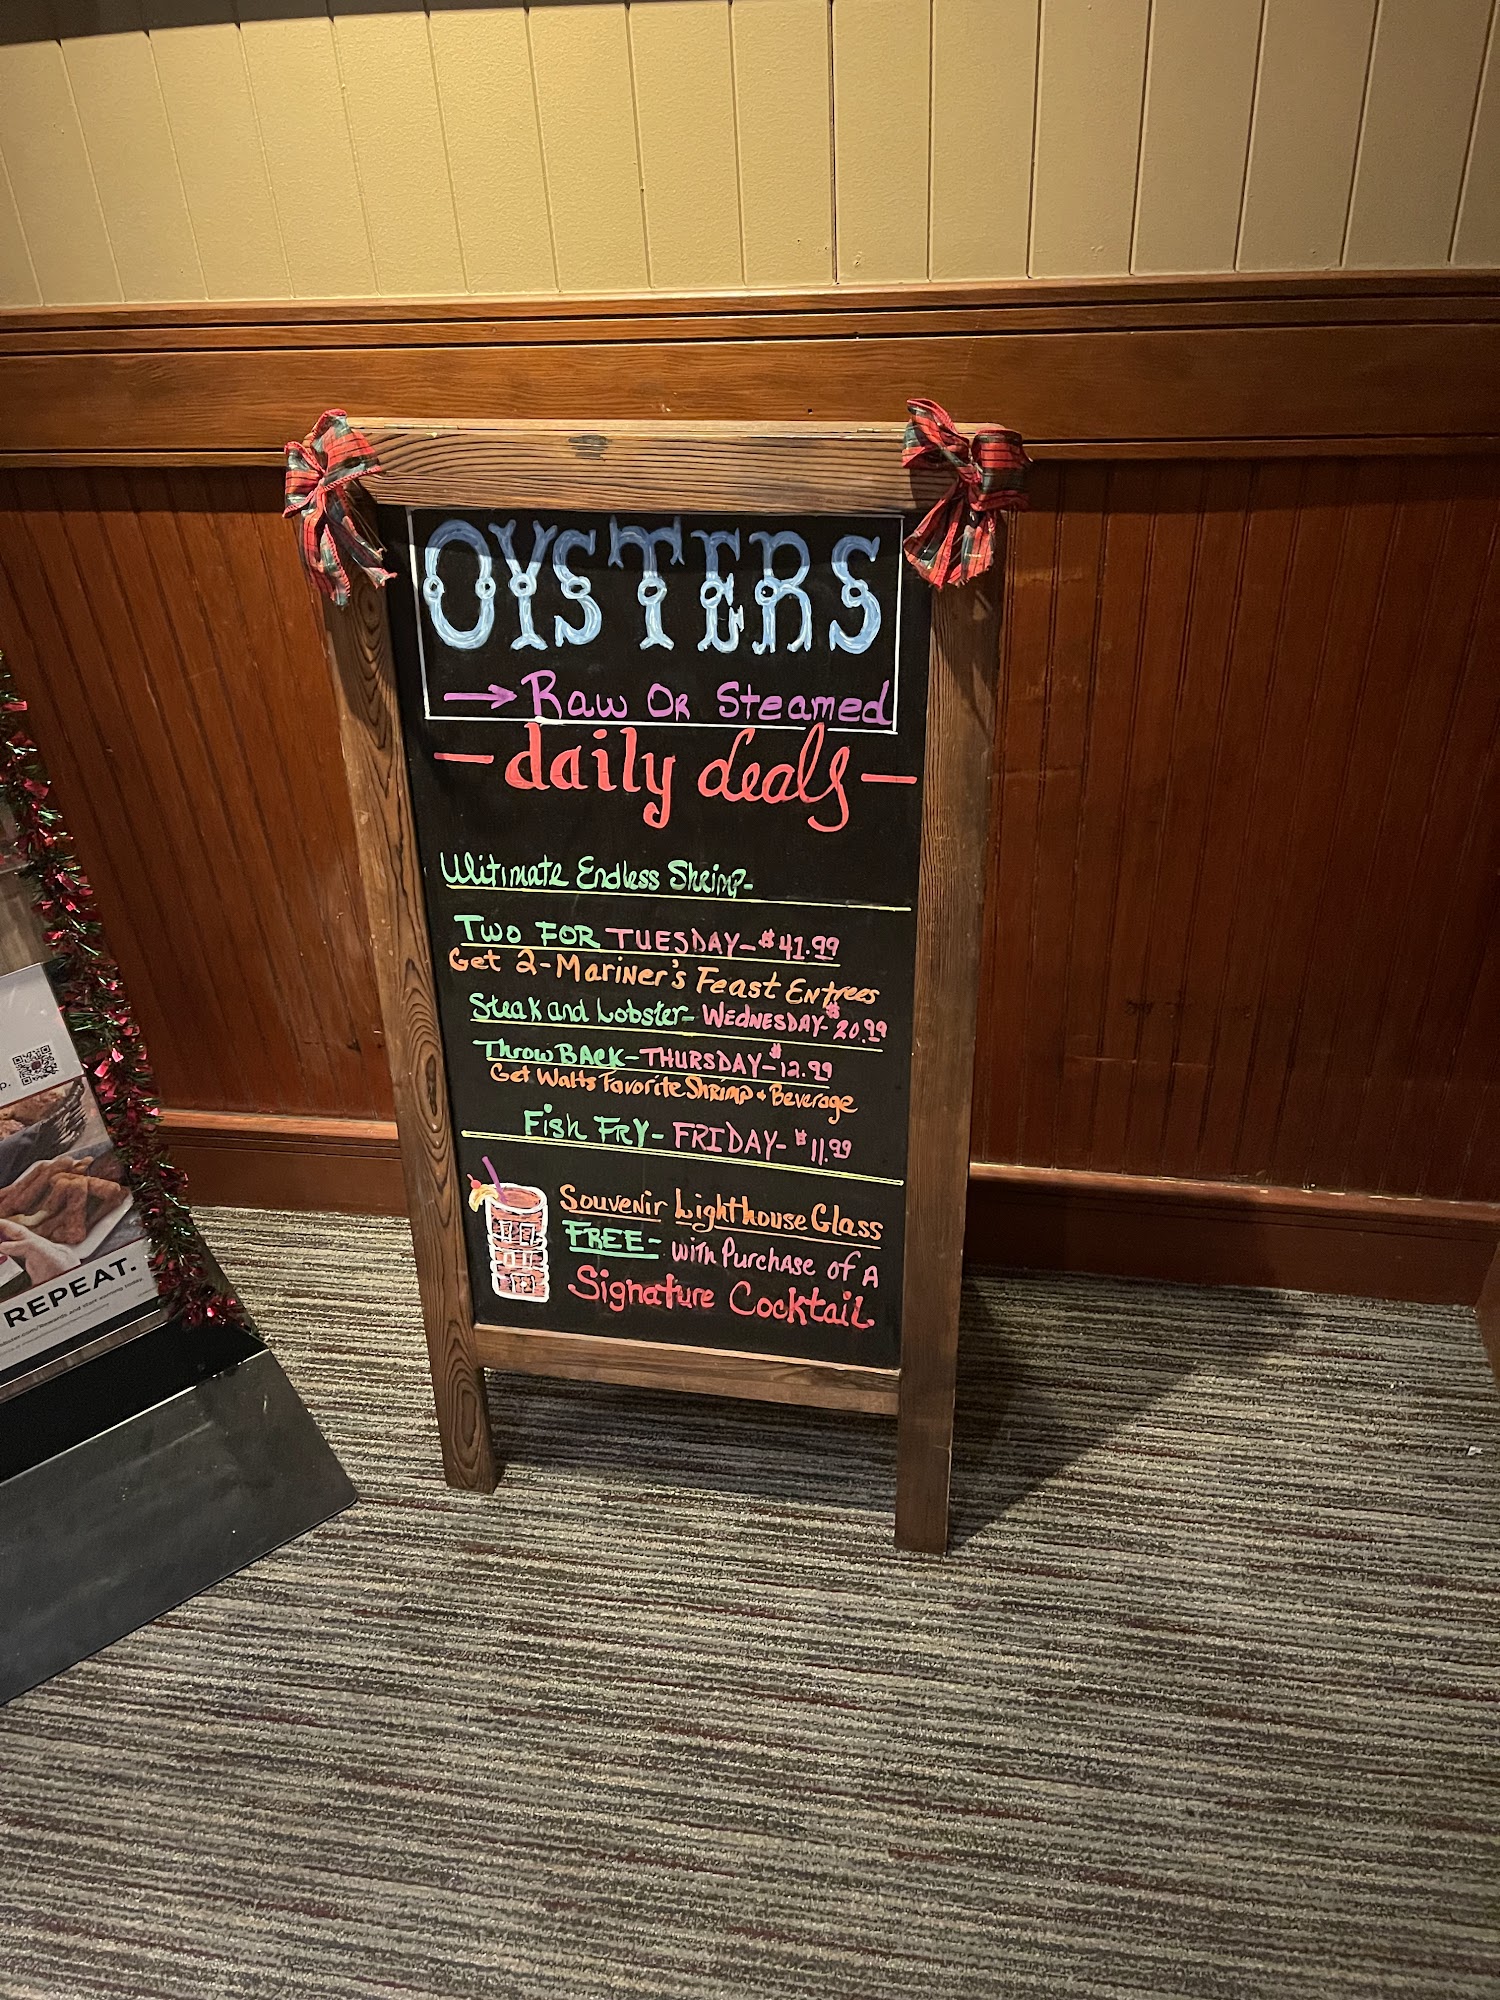 OYSTERS
→ Raw OR Steamed
— daily deals —
Ulitimate Endless Shrimp-
Two FOR TUESDAY- $41.99
Get 2-Mariner's Feast Entrees
Steak and Lobster- WEDNESDAY- $20.99
Throw BACK- THURSDAY- $12.99
Get Walts Favorite Shrimp + Beverage
Fish FRY- FRIDAY- $11.99
Souvenir Lighthouse Glass
FREE- with Purchase of A
Signature Cocktail
p.
REPEAT.